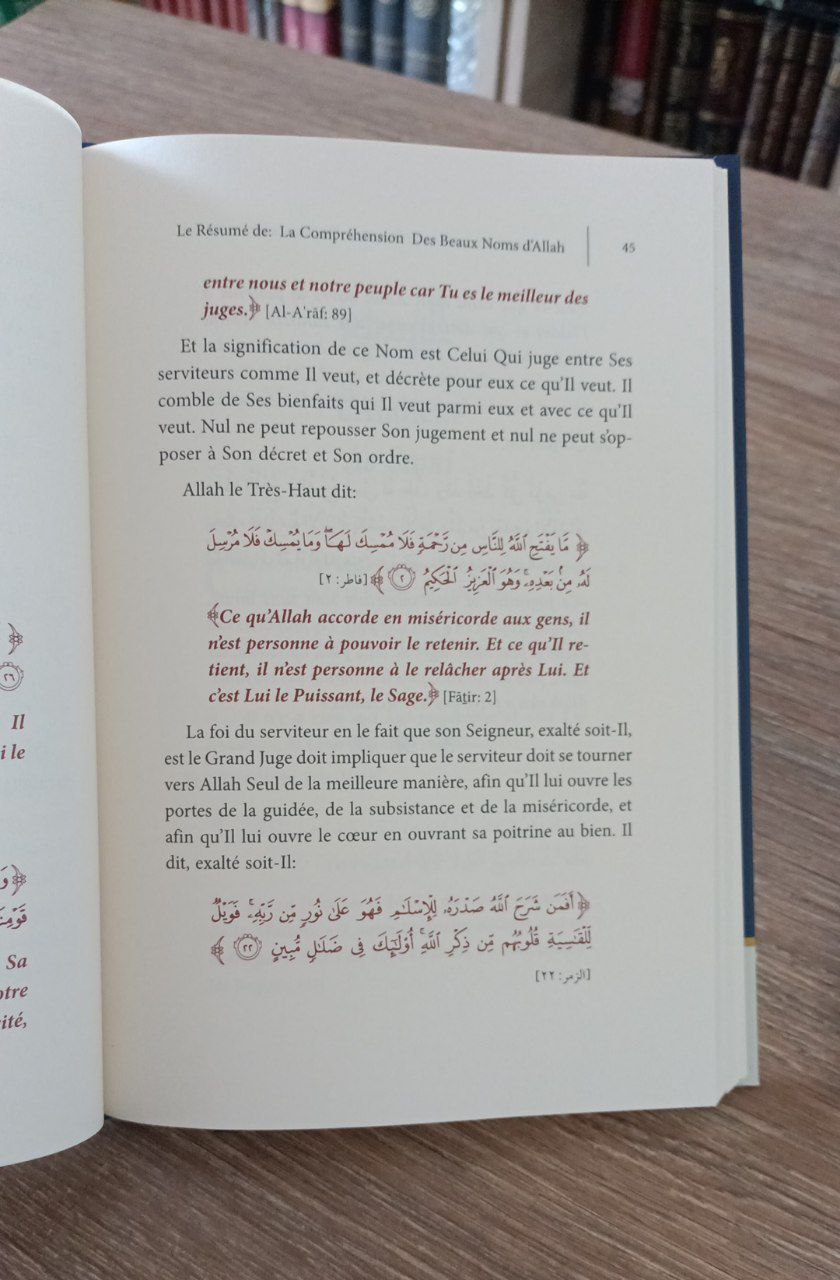 Le Résumé de: La Compréhension Des Beaux Noms d'Allah 45
entre nous et notre peuple car Tu es le meilleur des
juges.﴿ [Al-A‘rāf: 89]
Et la signification de ce Nom est Celui Qui juge entre Ses
serviteurs comme Il veut, et décrète pour eux ce qu'Il veut. Il
comble de Ses bienfaits qui Il veut parmi eux et avec ce qu'Il
veut. Nul ne peut repousser Son jugement et nul ne peut s'op-
poser à Son décret et Son ordre.
Allah le Très-Haut dit:
﴿ مَّا يَفۡتَحِ ٱللَّهُ لِلنَّاسِ مِن رَّحۡمَةٖ فَلَا مُمۡسِكَ لَهَاۖ وَمَا يُمۡسِكۡ فَلَا مُرۡسِلَ
لَهُۥ مِنۢ بَعۡدِهِۦۚ وَهُوَ ٱلۡعَزِيزُ ٱلۡحَكِيمُ ٢ ﴾ [فاطر: ٢]
﴾Ce qu'Allah accorde en miséricorde aux gens, il
n'est personne à pouvoir le retenir. Et ce qu'Il re-
tient, il n'est personne à le relâcher après Lui. Et
c'est Lui le Puissant, le Sage.﴿ [Fāṭir: 2]
La foi du serviteur en le fait que son Seigneur, exalté soit-Il,
est le Grand Juge doit impliquer que le serviteur doit se tourner
vers Allah Seul de la meilleure manière, afin qu'Il lui ouvre les
portes de la guidée, de la subsistance et de la miséricorde, et
afin qu'Il lui ouvre le cœur en ouvrant sa poitrine au bien. Il
dit, exalté soit-Il:
﴿ أَفَمَن شَرَحَ ٱللَّهُ صَدۡرَهُۥ لِلۡإِسۡلَٰمِ فَهُوَ عَلَىٰ نُورٖ مِّن رَّبِّهِۦۚ فَوَيۡلٞ
لِّلۡقَٰسِيَةِ قُلُوبُهُم مِّن ذِكۡرِ ٱللَّهِۚ أُوْلَٰٓئِكَ فِي ضَلَٰلٖ مُّبِينٍ ٢٢ ﴾
[الزمر: ٢٢]
٢٦
Il
i le
Sa
otre
ité,